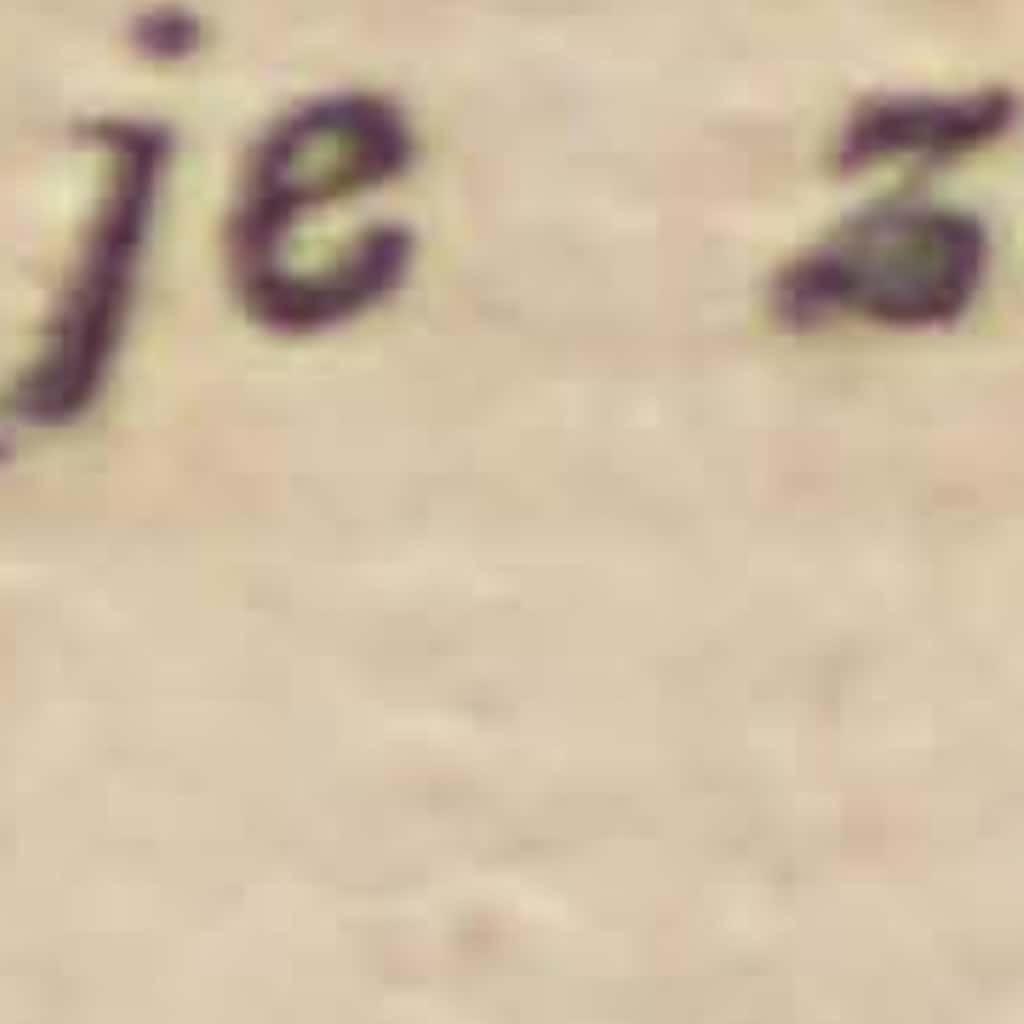 je z